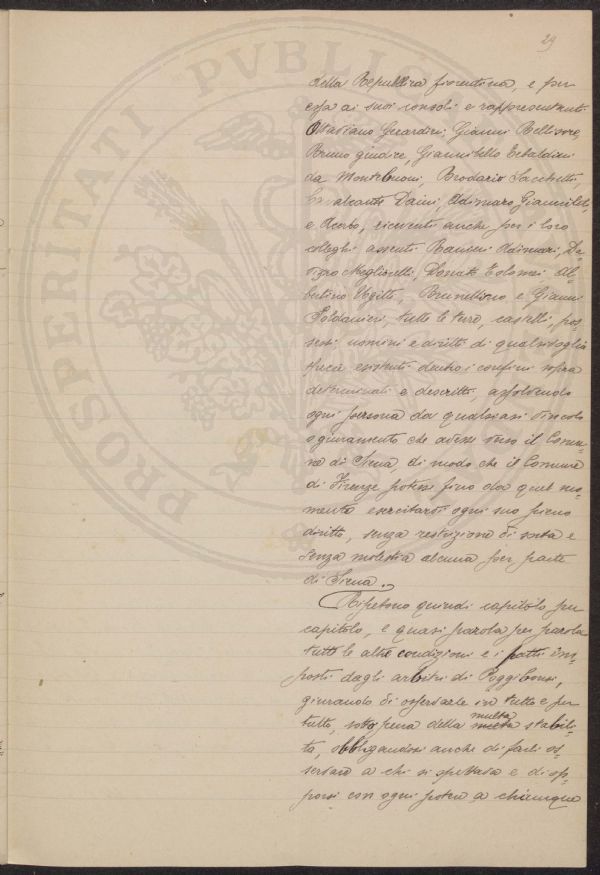 29
della Repubblica fiorentina, e per
essa ai suoi consoli e rappresentanti
Ottaviano Gerardini, Gianni Bellissimo,
Bruno giudice, Giannibello Tebaldini
da Montebuoni, Brodario Sacchetti,
Cavalcante Daini, Adimaro Gianni
e Acerbo, riceventi anche per i loro
colleghi assenti Ranieri Adimari, Da-
Donato Tolomei Al-
bertino Ugitti, Brunellino e Gianni
Soldanieri, tutte le terre, castelli, pos-
sessi uomini e diritti di qualsivoglia
specie esistenti dentro i confini sopra
determinati e descritti, assolvendo
ogni persona da qualsiasi vincolo
o giuramento che avesse verso il Comu-
ne di Siena, di modo che il Comune
di Firenze potesse fino da quel mo-
mento esercitarvi ogni suo pieno
diritto, senza restrizione di sorta e
senza molestia alcuna per parte
di Siena.
Ripetono quindi capitolo per
capitolo, e quasi parola per parola
tutte le altre condizioni e i patti im-
posti dagli arbitri di Poggibonsi,
giurando di osservarle in tutto e per
tutto, sotto pena della multa stabili-
ta, obbligandosi anche di farli os-
servare a chi si spettava e di op-
porsi con ogni potere a chiunque